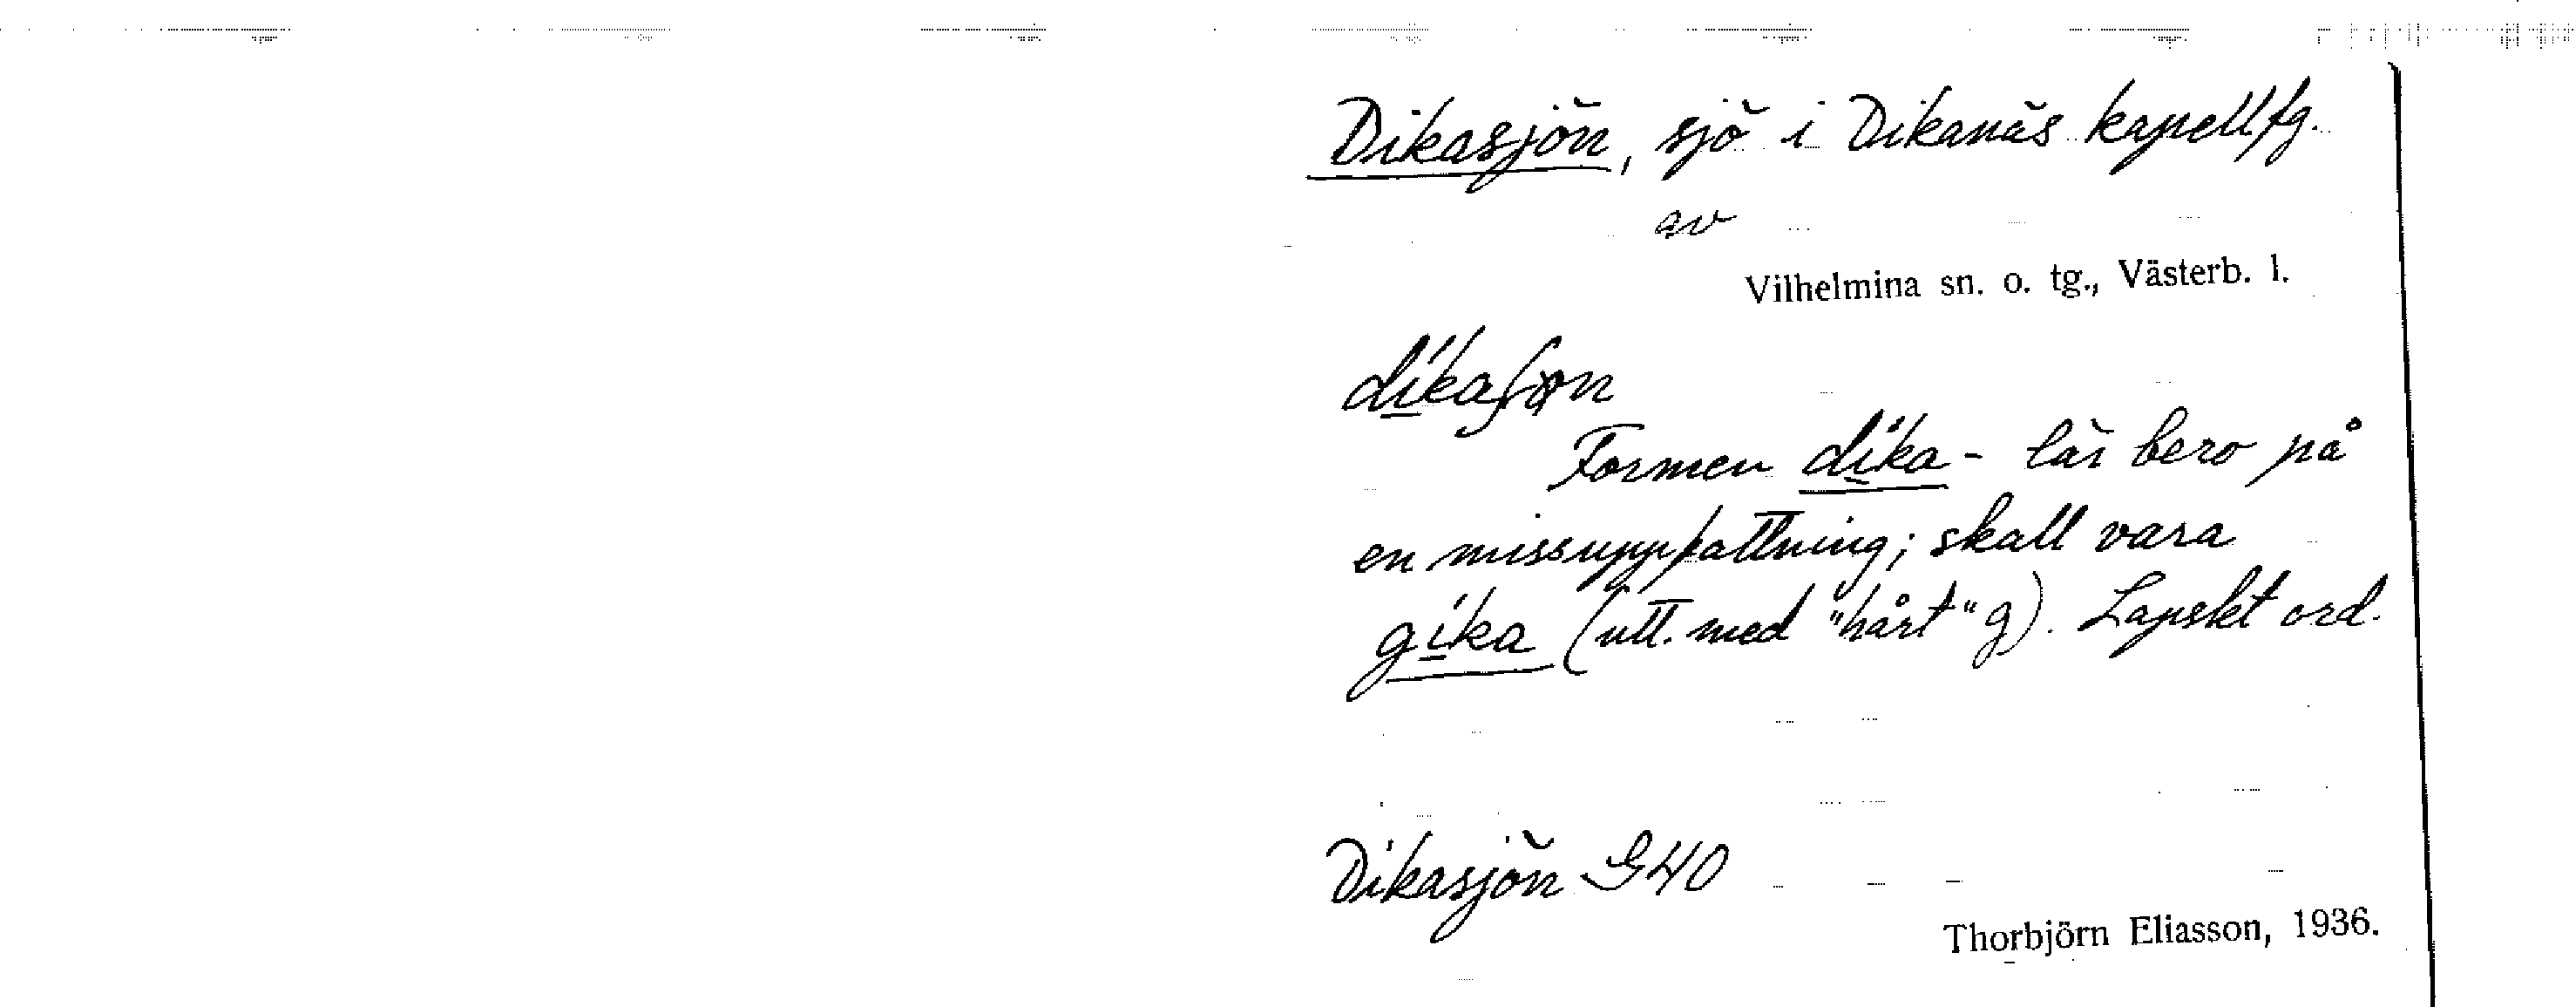 Dikasjön, sjö i Dikanäs kapellfg.
av
Vilhelmina sn. o. tg., Västerb. l.
díkaʃøn
Formen díka- lär bero på
en missuppfattning; skall vara
gíka (utt. med "hårt" g). Lapskt ord.
Dikasjön G40
Thorbjörn Eliasson, 1936.